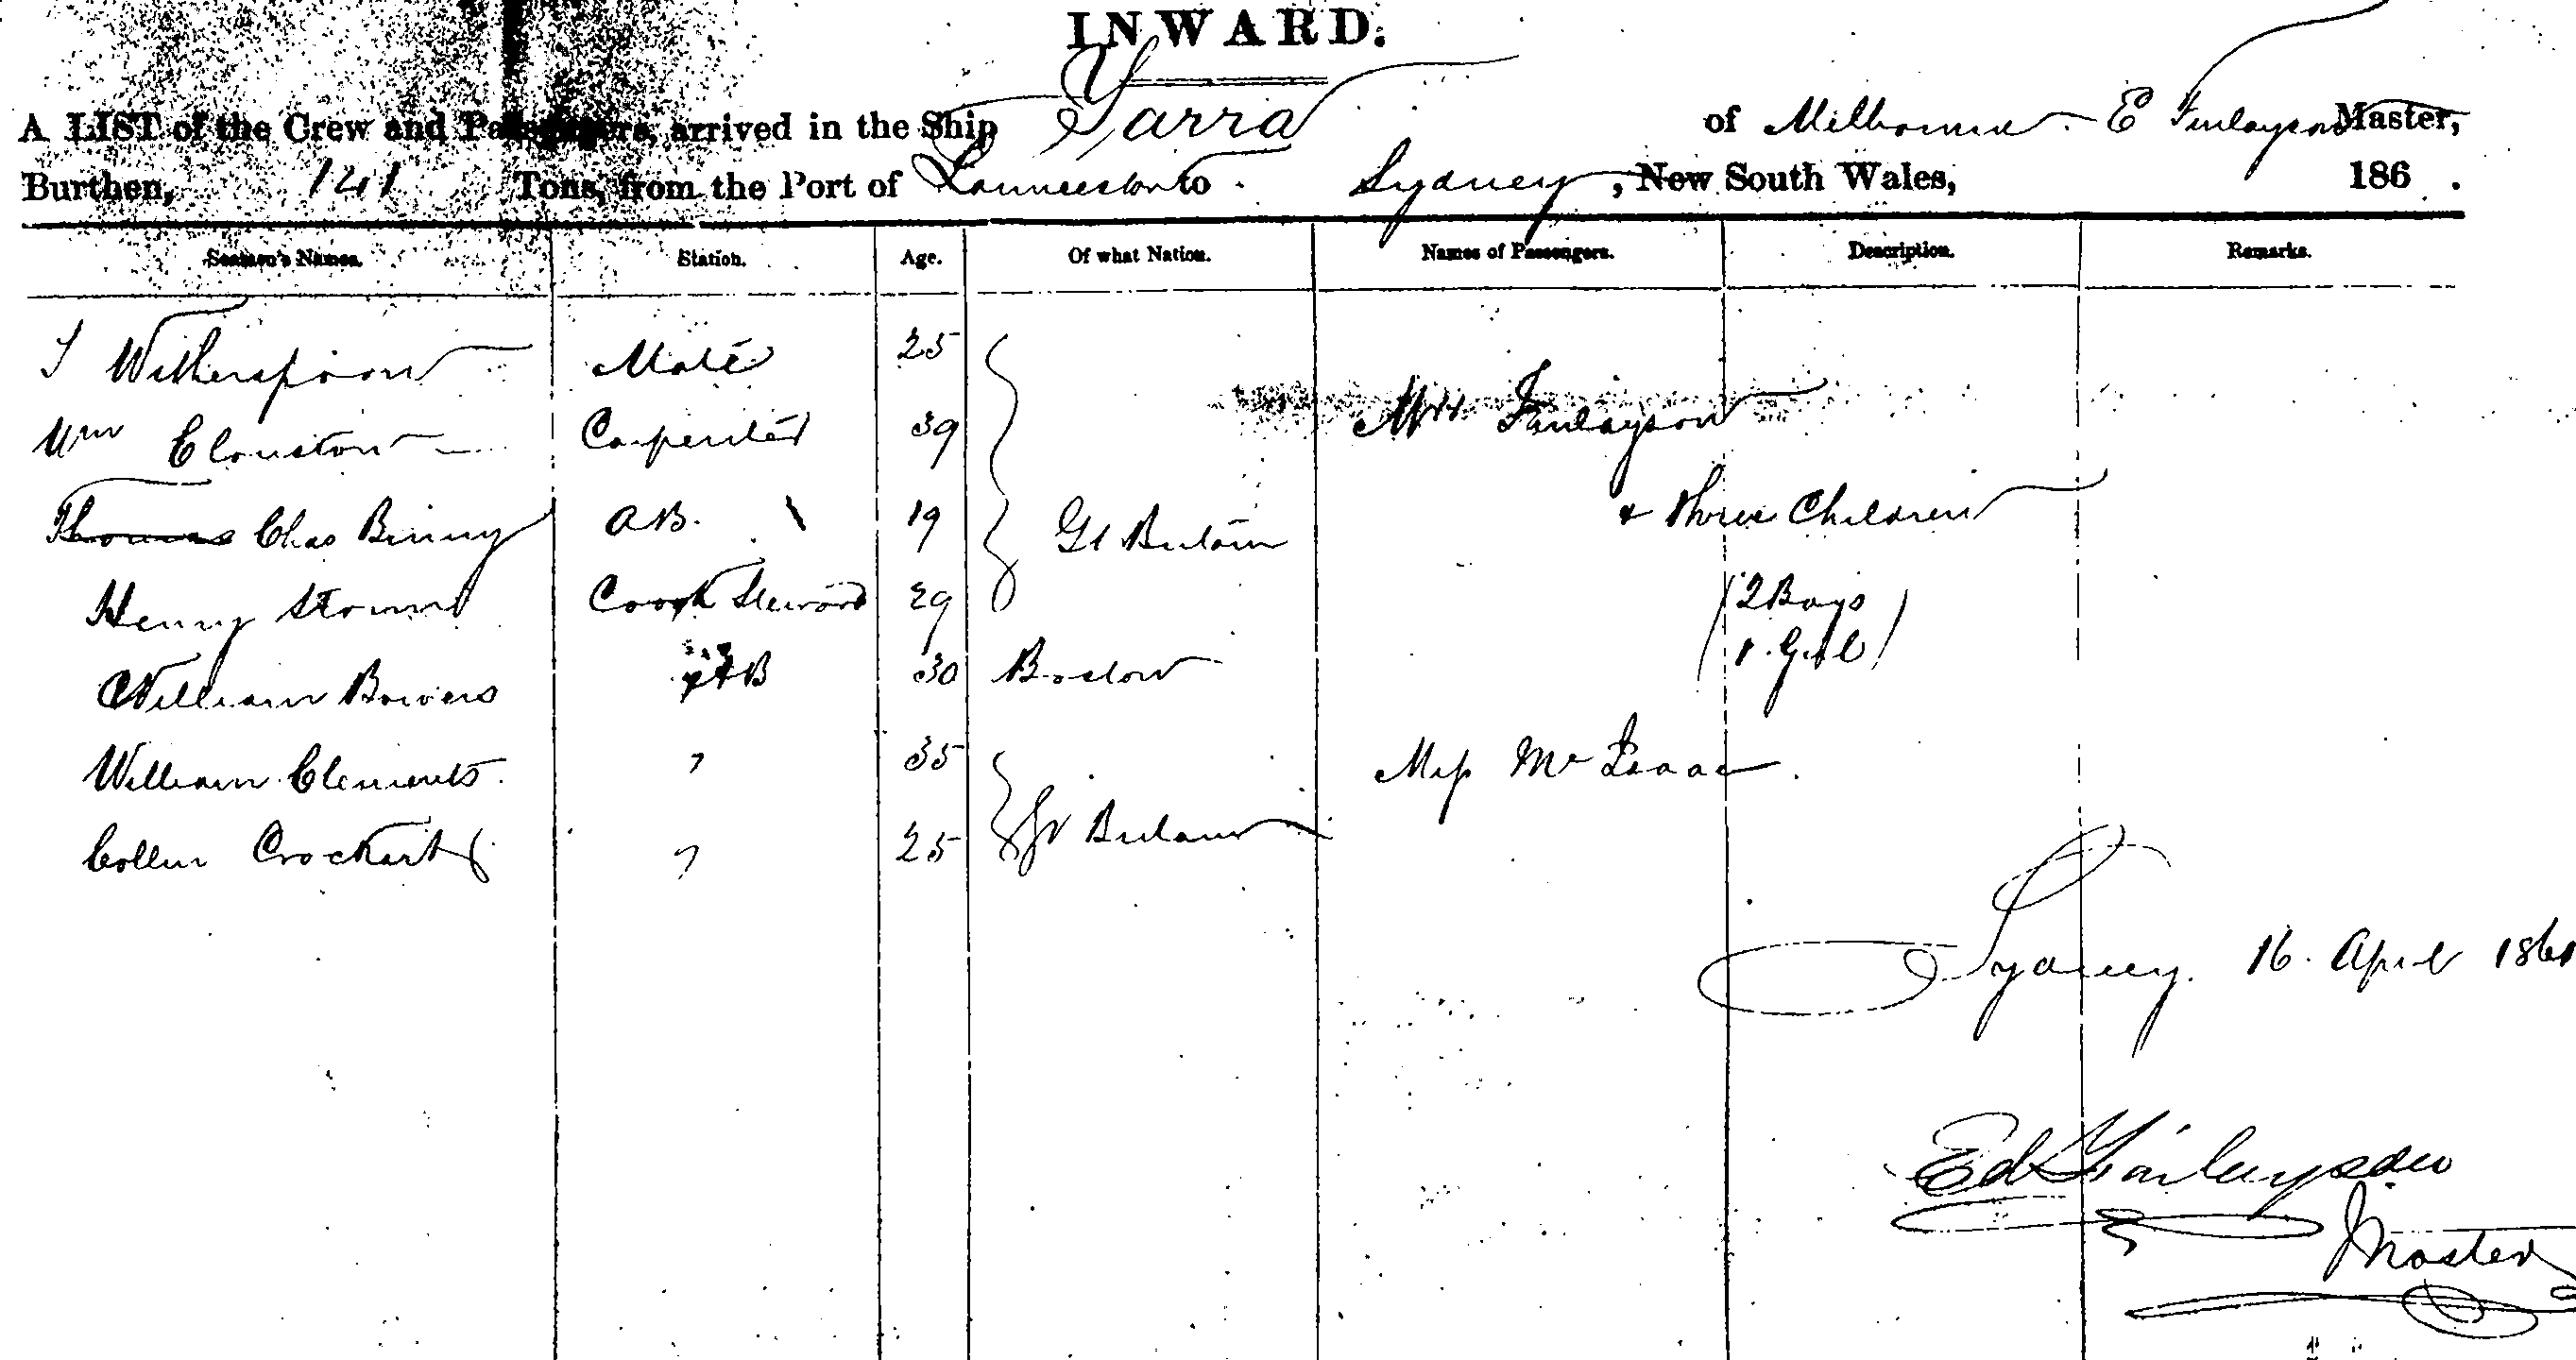 INWARD.
A LIST of the Crew and Passengers, arrived in the Ship Yarra of Melbourne. E Finlayson Master,
Burthen, 141 Tons, from the Port of Launceston to Sydney, New South Wales, 186 .
Seamen's Names. Station. Age. Of what Nation. Names of Passengers. Description. Remarks.
Witherspoon Mate 25
Wm Clouston Carpenter 39 Mrs Finlayson
Thomas Chas Binny AB. 19 Gt Britain & Three Children
Henry Cook Steward 29 (2 Boys
William Bowers AB 30 Boston 1 Girl)
William Clements 35 Miss Mc Isaac
Crockart 25 Gt Britain
Sydney. 16. April 1861
Ed Finlayson
Master